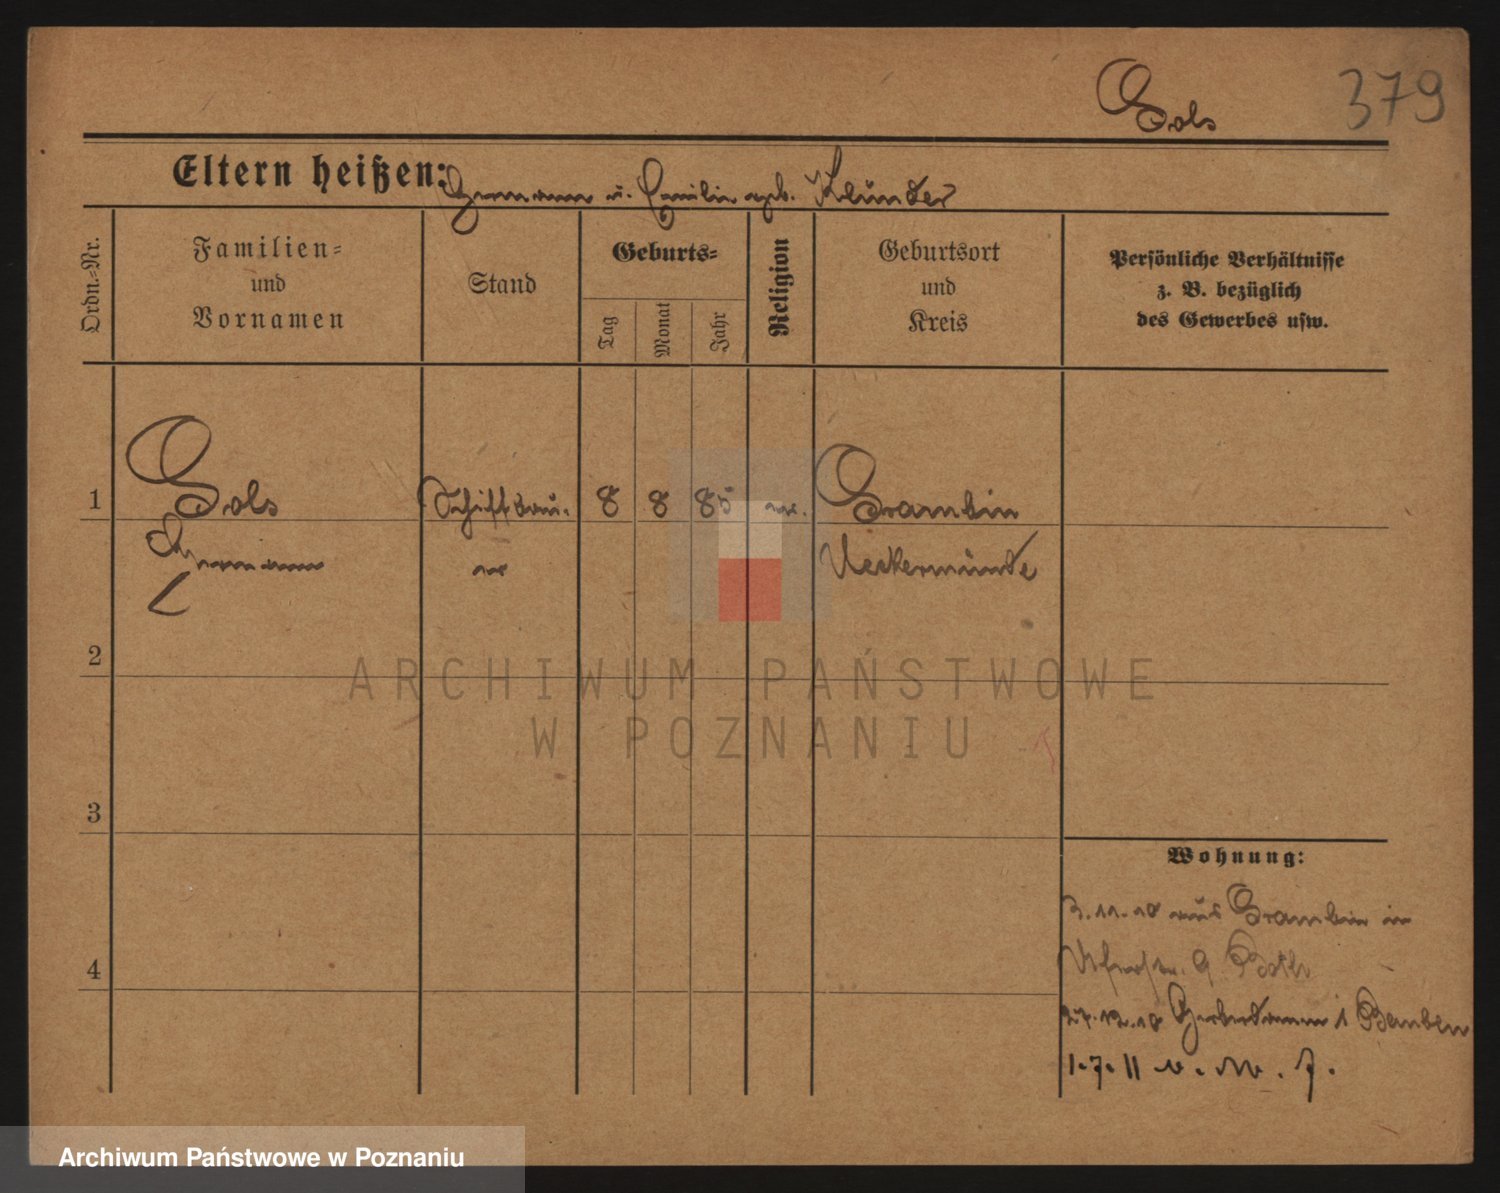 Gols
379
Eltern heißen: Hermann u. Emilie geb. Klünder
Ordn.-Nr.
Familien-
und
Vornamen
Stand
Geburts-
Tag
Monat
Jahr
Religion
Geburtsort
und
Kreis
Persönliche Verhältnisse
z. B. bezüglich
des Gewerbes usw.
1
Gols
Schiffbau-
8
8
85
ev.
Grambin
Hermann
er
Ueckermünde
2
ARCHIWUM PAŃSTWOWE
W POZNANIU
3
Wohnung:
3.11.10 aus Grambin in
4
9
27.12.10 Gerberdamm 1
1.7.11 v. M. J.
Archiwum Państwowe w Poznaniu